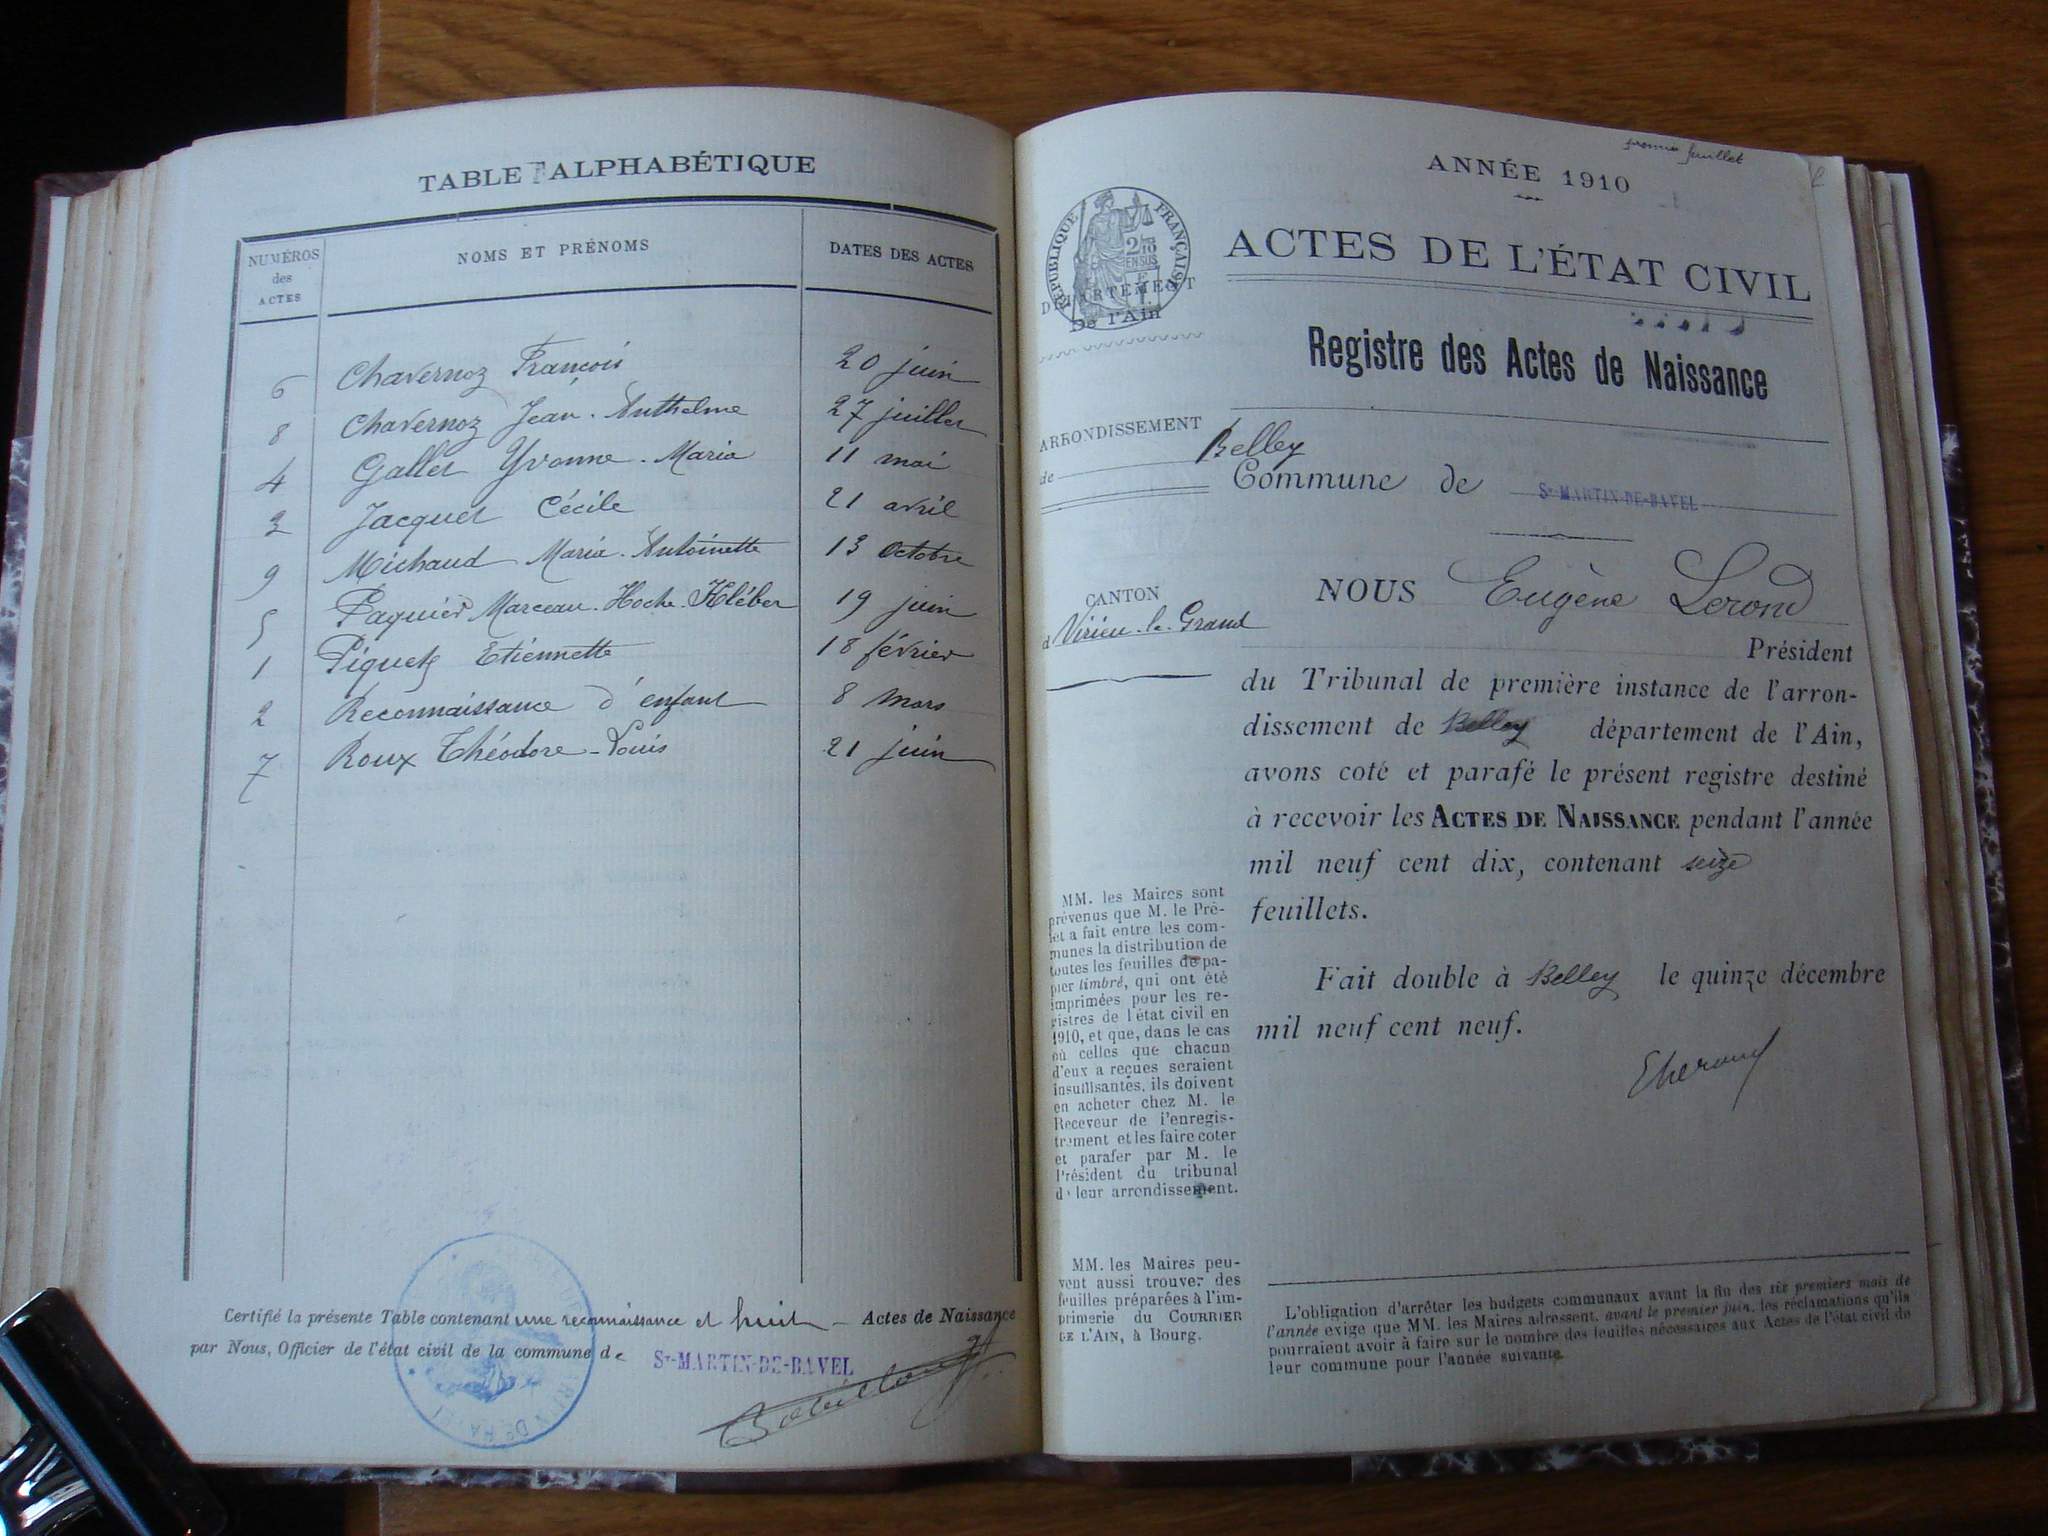 TABLE ALPHABÉTIQUE
NUMÉROS des ACTES
NOMS ET PRÉNOMS
DATES DES ACTES
6 Chavernoz François 20 juin
8 Chavernoz Jean-Anthelme 27 juillet
4 Gallet Yvonne-Maria 11 mai
3 Jacquet Cécile 21 avril
9 Michaud Maria-Antoinette 13 octobre
5 Paquier Marceau-Hoche-Kléber 19 juin
1 Piquet Etiennette 18 février
2 Reconnaissance d'enfant 8 mars
7 Roux Théodore-Louis 21 juin
Certifié la présente Table contenant une reconnaissance et huit Actes de Naissance
par Nous, Officier de l'état civil de la commune de ST-MARTIN-DE-BAVEL
premier feuillet
ANNÉE 1910
RÉPUBLIQUE FRANÇAISE
DÉPARTEMENT
De l'Ain
ACTES DE L'ÉTAT CIVIL
Registre des Actes de Naissance
ARRONDISSEMENT
de Belley
Commune de ST-MARTIN-DE-BAVEL
CANTON
d Virieu-le-Grand
NOUS Eugène
Président
du Tribunal de première instance de l'arron-
dissement de Belley département de l'Ain,
avons coté et parafé le présent registre destiné
à recevoir les ACTES DE NAISSANCE pendant l'année
mil neuf cent dix, contenant seize
feuillets.
Fait double à Belley le quinze décembre
mil neuf cent neuf.
MM. les Maires sont
prévenus que M. le Pré-
fet a fait entre les com-
munes la distribution de
toutes les feuilles de pa-
pier timbré, qui ont été
imprimées pour les re-
gistres de l'état civil en
1910, et que, dans le cas
où celles que chacun
d'eux a reçues seraient
insuffisantes, ils doivent
en acheter chez M. le
Receveur de l'enregis-
trement et les faire coter
et parafer par M. le
Président du tribunal
de leur arrondissement.
MM. les Maires peu-
vent aussi trouver des
feuilles préparées à l'im-
primerie du COURRIER
DE L'AIN, à Bourg.
L'obligation d'arrêter les budgets communaux avant la fin des six premiers mois de
l'année exige que MM. les Maires adressent, avant le premier juin, les réclamations qu'ils
pourraient avoir à faire sur le nombre des feuilles nécessaires aux Actes de l'état civil de
leur commune pour l'année suivante.